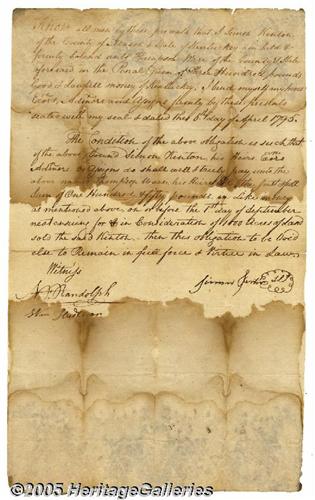 Know all men by these presents that I Simon Kenton
of the County of Mason & State of Kentucky am held &
firmly bound unto Thompson Ware of the County & State
aforesaid in the Penal Sum of Hundred pounds
good & lawfull money of Kentucky, I bind myself my heirs
Exors Adminrs and firmly by these presents
sealed with my seal & dated this 6th day of April 1795.
The Condition of the above obligation is such that
if the above bound Simon Kenton, his heirs Exors
Adminrs or do shall well & truly pay unto the
above Thompson Ware, his Heirs the full
Sum of One Hundred & fifty pounds in Like money
as mentioned above on or before the 1st day of September
next ensuing for & in Consideration of 1000 acres of land
sold the said Kenton. then this obligation to be void
else to Remain in full force & Virtue in Law
Witness
Randolph
Simon Kenton
©2005 HeritageGalleries